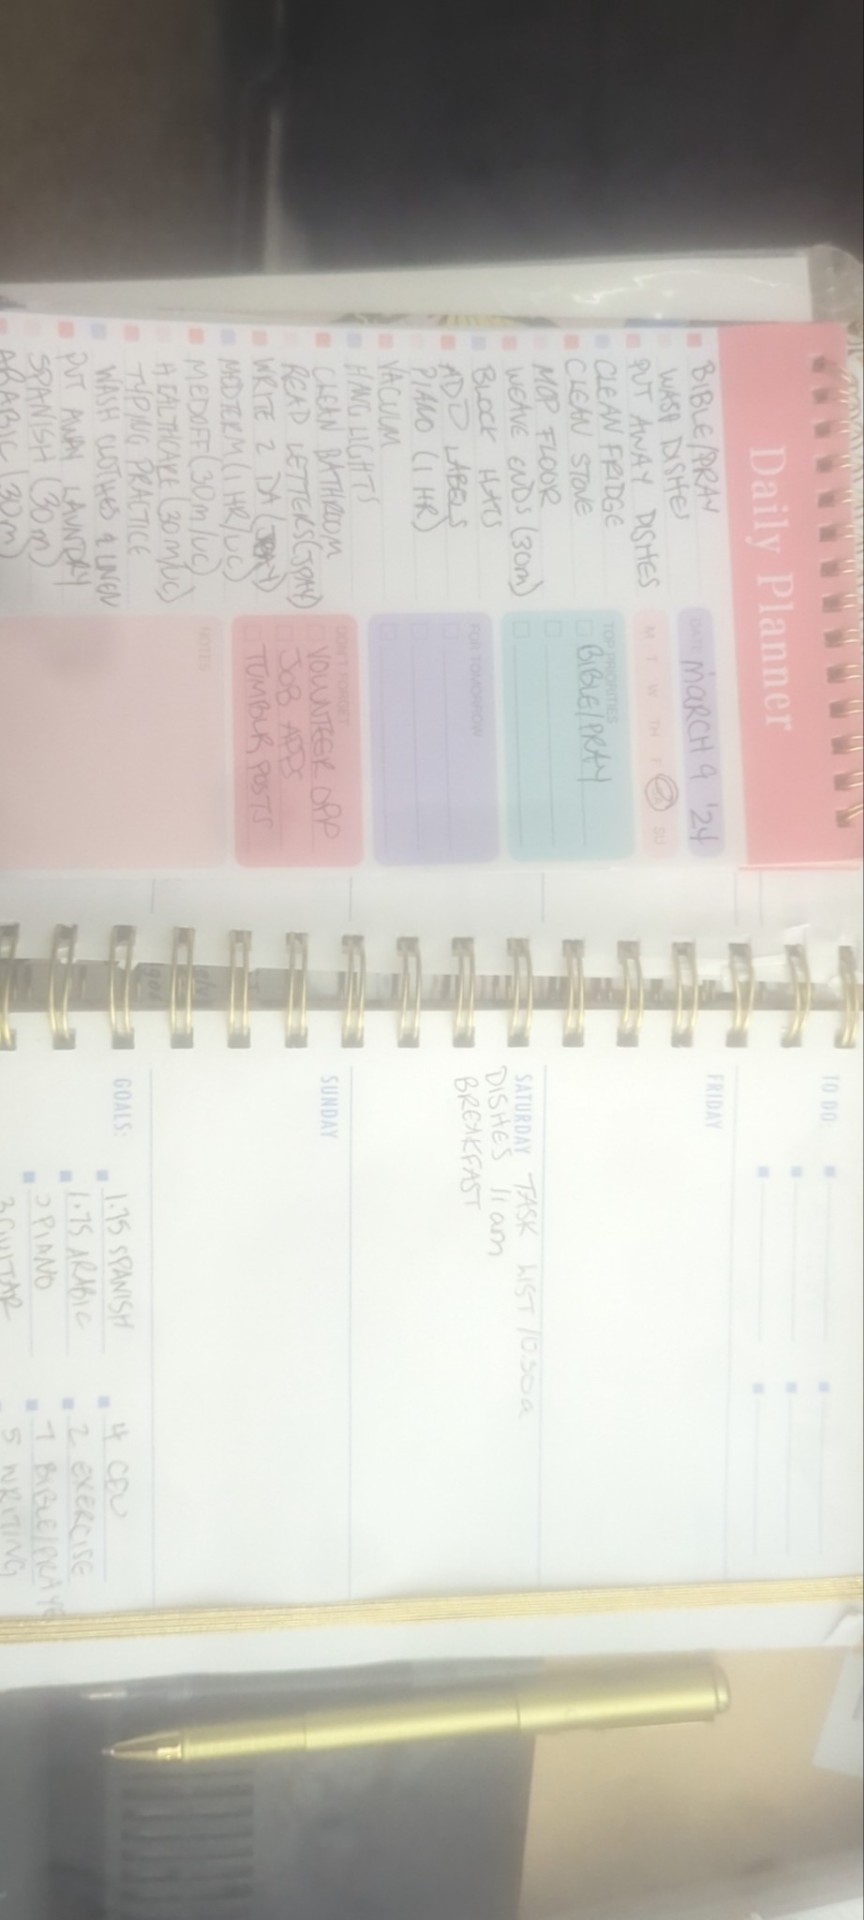 Daily Planner
BIBLE/PRAY
WASH DISHES
PUT AWAY DISHES
CLEAN FRIDGE
CLEAN STOVE
MOP FLOOR
WEAVE ENDS (30m)
BLOCK HATS
ADD LABELS
PIANO (1 HR)
VACUUM
HANG LIGHTS
CLEAN BATHROOM
READ LETTERS
WRITE 2 DA
MIDTERM (1 HR/UC)
MEDOFF (30m/UC)
HEALTHCARE (30m/UC)
TYPING PRACTICE
WASH CLOTHES & LINEN
PUT AWAY LAUNDRY
SPANISH (30m)
ARABIC (30m)
DATE MARCH 9 '24
M T W TH F SU
TOP PRIORITIES
BIBLE/PRAY
FOR TOMORROW
DON'T FORGET
VOLUNTEER OPP
JOB APPS
TUMBLR POSTS
NOTES
TO DO:
FRIDAY
SATURDAY TASK LIST 10:30a
DISHES 11am
BREAKFAST
SUNDAY
GOALS:
1.75 SPANISH
1.75 ARABIC
PIANO
3 GUITAR
4 CEU
2 EXERCISE
7 BIBLE/PRAYE
5 WRITING